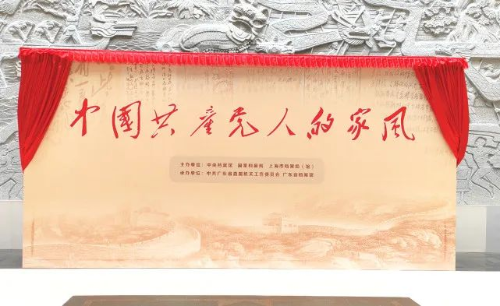 中國共產党人的家风
主办单位：中央档案馆 国家档案局 上海市档案局（馆）
承办单位：中共广东省直属机关工作委员会 广东省档案馆